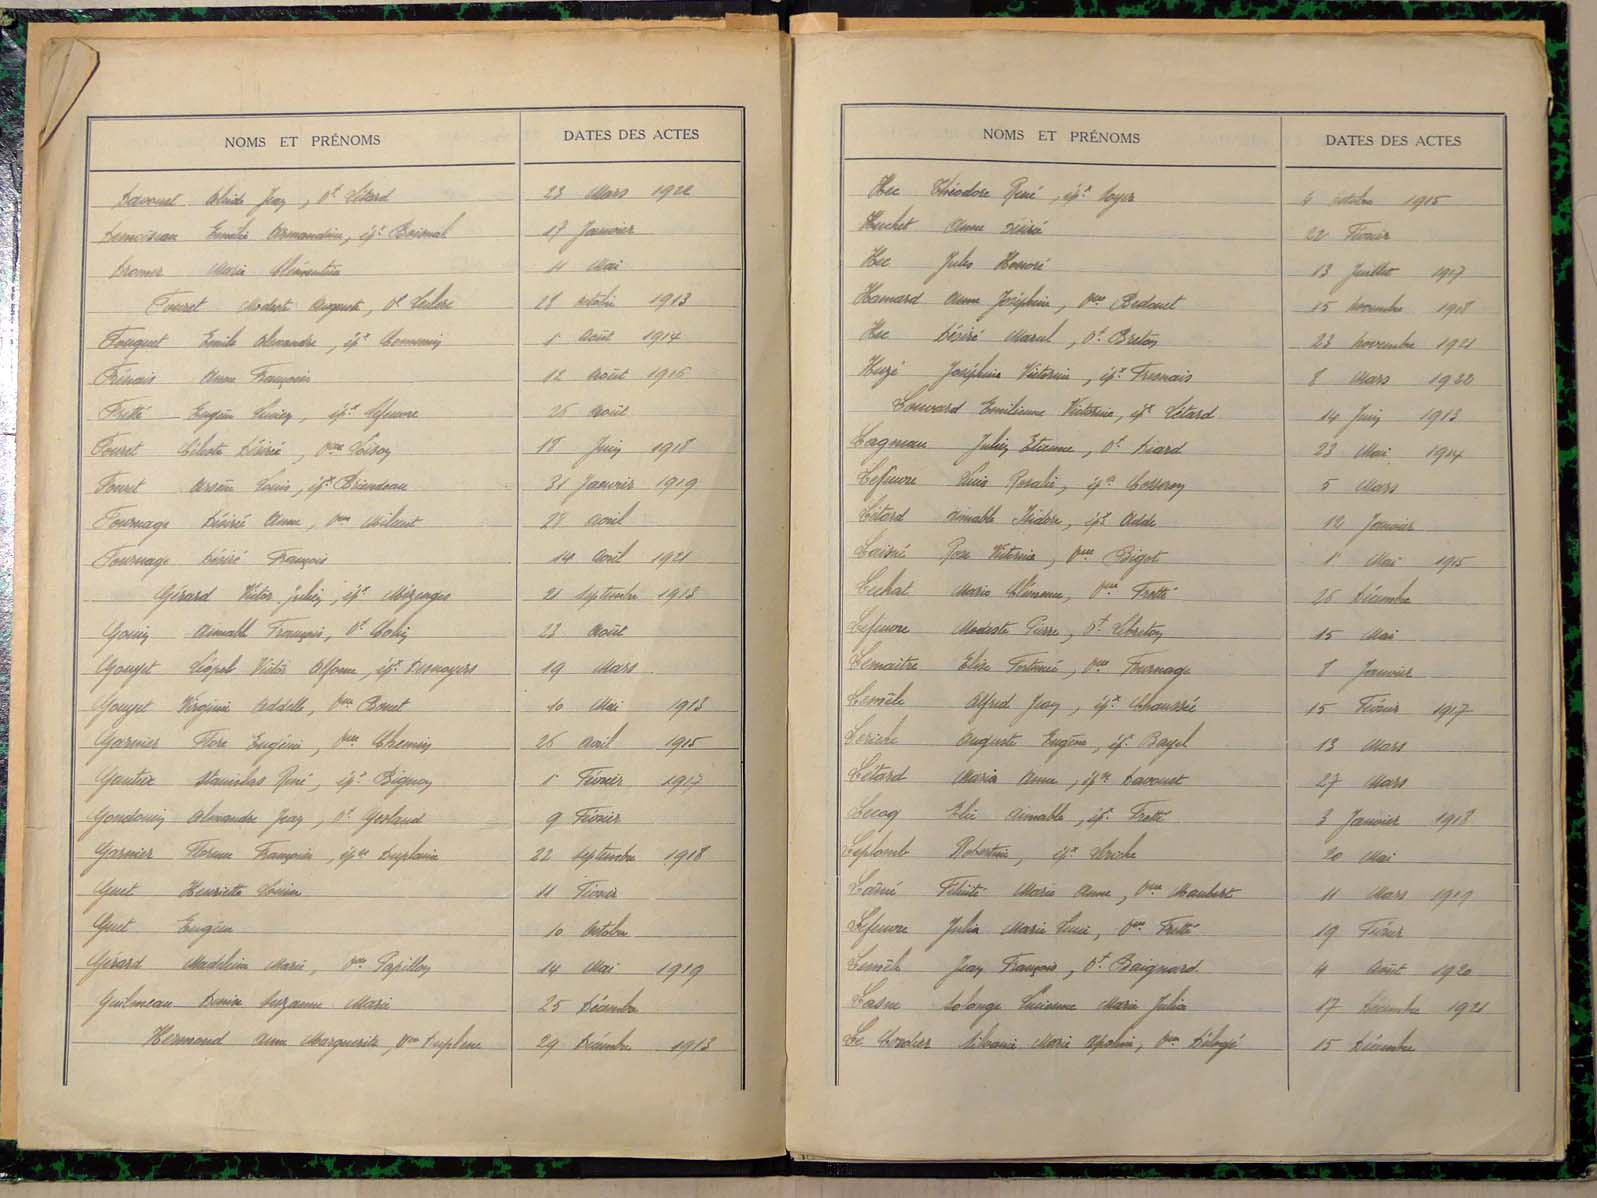 NOMS ET PRÉNOMS
DATES DES ACTES
Davoust Jean, Vf Létard 23 Mars 1922
Emilie Armandine, épse 17 Janvier
Marie Clémentine 11 Mai
Fouret Modeste Auguste, Vf Leclerc 28 octobre 1913
Fouquet Emile Alexandre, épx 1 Août 1914
Frénais Anne Françoise 12 Août 1916
Fretté Eugène Lucien, épx Lefeuvre 26 Août
Fouret Céleste Désirée, Vve Loison 18 Juin 1918
Fouret Arsène Louis, épx Briendeau 31 Janvier 1919
Fournage Désirée Anne, Vve Milcent 28 Avril
Fournage Désiré François 14 Avril 1921
Gérard Victor Julien, épx Mézerges 21 Septembre 1913
Gouin Aimable François, Vf 23 Août
Gouyet Victor Alfonse épx Desnoyers 19 Mars
Gouyet Virginie Addelle, Vve 10 Mai 1913
Garnier Flore Eugénie, Vve Chemin 26 Avril 1915
Gautier Stanislas René, épx Bignon 1 Février 1917
Gondouin Alexandre Jean, Vf Gesland 9 Février
Garnier Florence Françoise, épse Duplaine 22 Septembre 1918
Guet Henriette Louise 11 Février
Guet Eugène 10 Octobre
Gérard Madeleine Marie, Vve Papillon 14 Mai 1919
Guilmeau Denise Suzanne Marie 25 Décembre
Hermand Anne Marguerite, Vve 29 Décembre 1913
NOMS ET PRÉNOMS
DATES DES ACTES
Hec Théodore René, épx 6 octobre 1915
Huchet Anne Désirée 22 Février
Hec Jules Honoré 13 Juillet 1917
Hamard Anne Joséphine, Vve Bedouet 15 Novembre 1918
Hec Désiré Marcel, Vf Breton 23 Novembre 1921
Huzé Joséphine Victorine, épx Fresnais 8 Mars 1922
Louvard Emilienne Victorine, épx Létard 14 Juin 1913
Lagneau Julien Etienne, Vf Diard 23 Mai 1914
Lefeuvre Rosalie, épse 5 Mars
Létard Aimable Isidore, épx Adde 12 Janvier
Laisné Rose Victorine, Vve Bigot 1 Mai 1915
Lechat Marie Clémence, Vve Fretté 26 Décembre
Lefeuvre Modeste Pierre, Vf Lebreton 15 Mai
Lemaitre Elise Fortunée, Vve Fournage 8 Janvier
Lemêle Alfred Jean, épx Chaussée 15 Février 1917
Leriche Auguste Eugène, épx Bayel 13 Mars
Létard Maria Anne, épse Davoust 27 Mars
Lecoq Elie Aimable, épx Fretté 3 Janvier 1918
Leplomb Robertine, épx 20 Mai
Laîné Félicité Marie Anne, Vve Maubert 11 Mars 1919
Lefeuvre Julia Marie Vve Fretté 19 Février
Lemêle Jean François, Vf Baignard 4 Août 1920
Lasne Solange Lucienne Marie Julia 17 Décembre 1921
Le Coudier Marie Apoline, Vve 15 Décembre